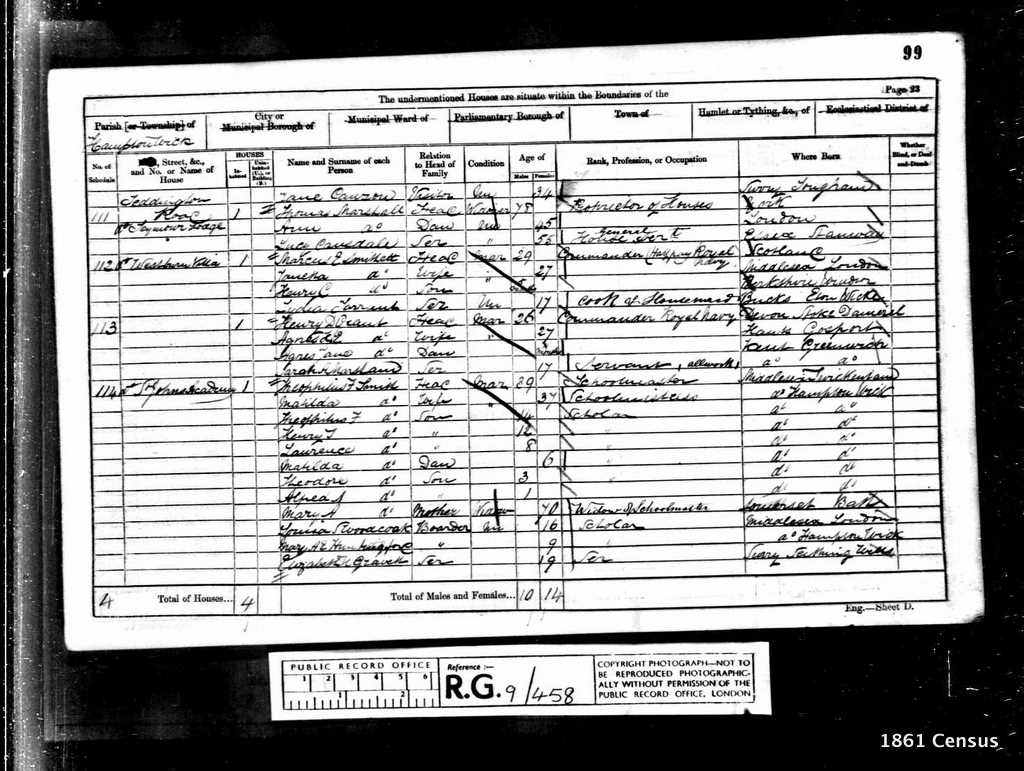 99
Page 23
The undermentioned Houses are situate within the Boundaries of the
Parish [or Township] of
Hampton Wick
City or Municipal Borough of
Municipal Ward of
Parliamentary Borough of
Town of
Hamlet or Tything, &c., of
Ecclesiastical District of
No. of Schedule
Street, &c., and No. or Name of House
HOUSES
Inhabited
Uninhabited (U.), or Building (B.)
Name and Surname of each Person
Relation to Head of Family
Condition
Age of
Males
Females
Rank, Profession, or Occupation
Where Born
Whether Blind, or Deaf-and-Dumb
Teddington Jane Visitor Un 34
111 Road 1 Thomas Marshall Head Widower 78 Proprietor of Houses York
do Seymour Lodge Ann do Daur Un 45 London
Lucy Ser " 55 General House Servt Essex
112 Westbourn Villa 1 Marcus Head Mar 29 Commander (Half pay) Royal Navy Scotland
do Wife " 27 Middlesex London
Henry C do Son Berkshire Windsor
Lydia Ser Un 17 Cook & Housemaid Bucks Eton Wick
113 1 Henry D Grant Head Mar 26 Commander Royal Navy Devon Stoke Damerel
Agnes do Wife " 27 Hants Gosport
Agnes Jane do Daur Kent Greenwich
Sarah Ser 17 Servant, allwork do do
114 St Johns Academy 1 Theophilus F Smith Head Mar 39 Schoolmaster Middlesex Twickenham
Matilda do Wife " 37 Schoolmistress do Hampton Wick
Theophilus F do Son 14 Scholar do do
Henry do " 12 " do do
Laurence do " 8 do do
Matilda do Daur 6 " do do
Theodore do Son 3 do do
do " 1 do do
Mary A do Mother Widow 70 Widow of Schoolmaster Somerset Bath
Louisa Woodcock Boarder Un 16 Scholar Middlesex London
Mary A E " 9 " do Hampton Wick
Elizabeth Gravett Ser 19 Ser
4 Total of Houses... 4 Total of Males and Females... 10 14
Eng.—Sheet D.
PUBLIC RECORD OFFICE
1 2 3 4 5 6
1 2
Reference :—
R.G. 9/458
COPYRIGHT PHOTOGRAPH—NOT TO
BE REPRODUCED PHOTOGRAPHIC-
ALLY WITHOUT PERMISSION OF THE
PUBLIC RECORD OFFICE, LONDON
1861 Census